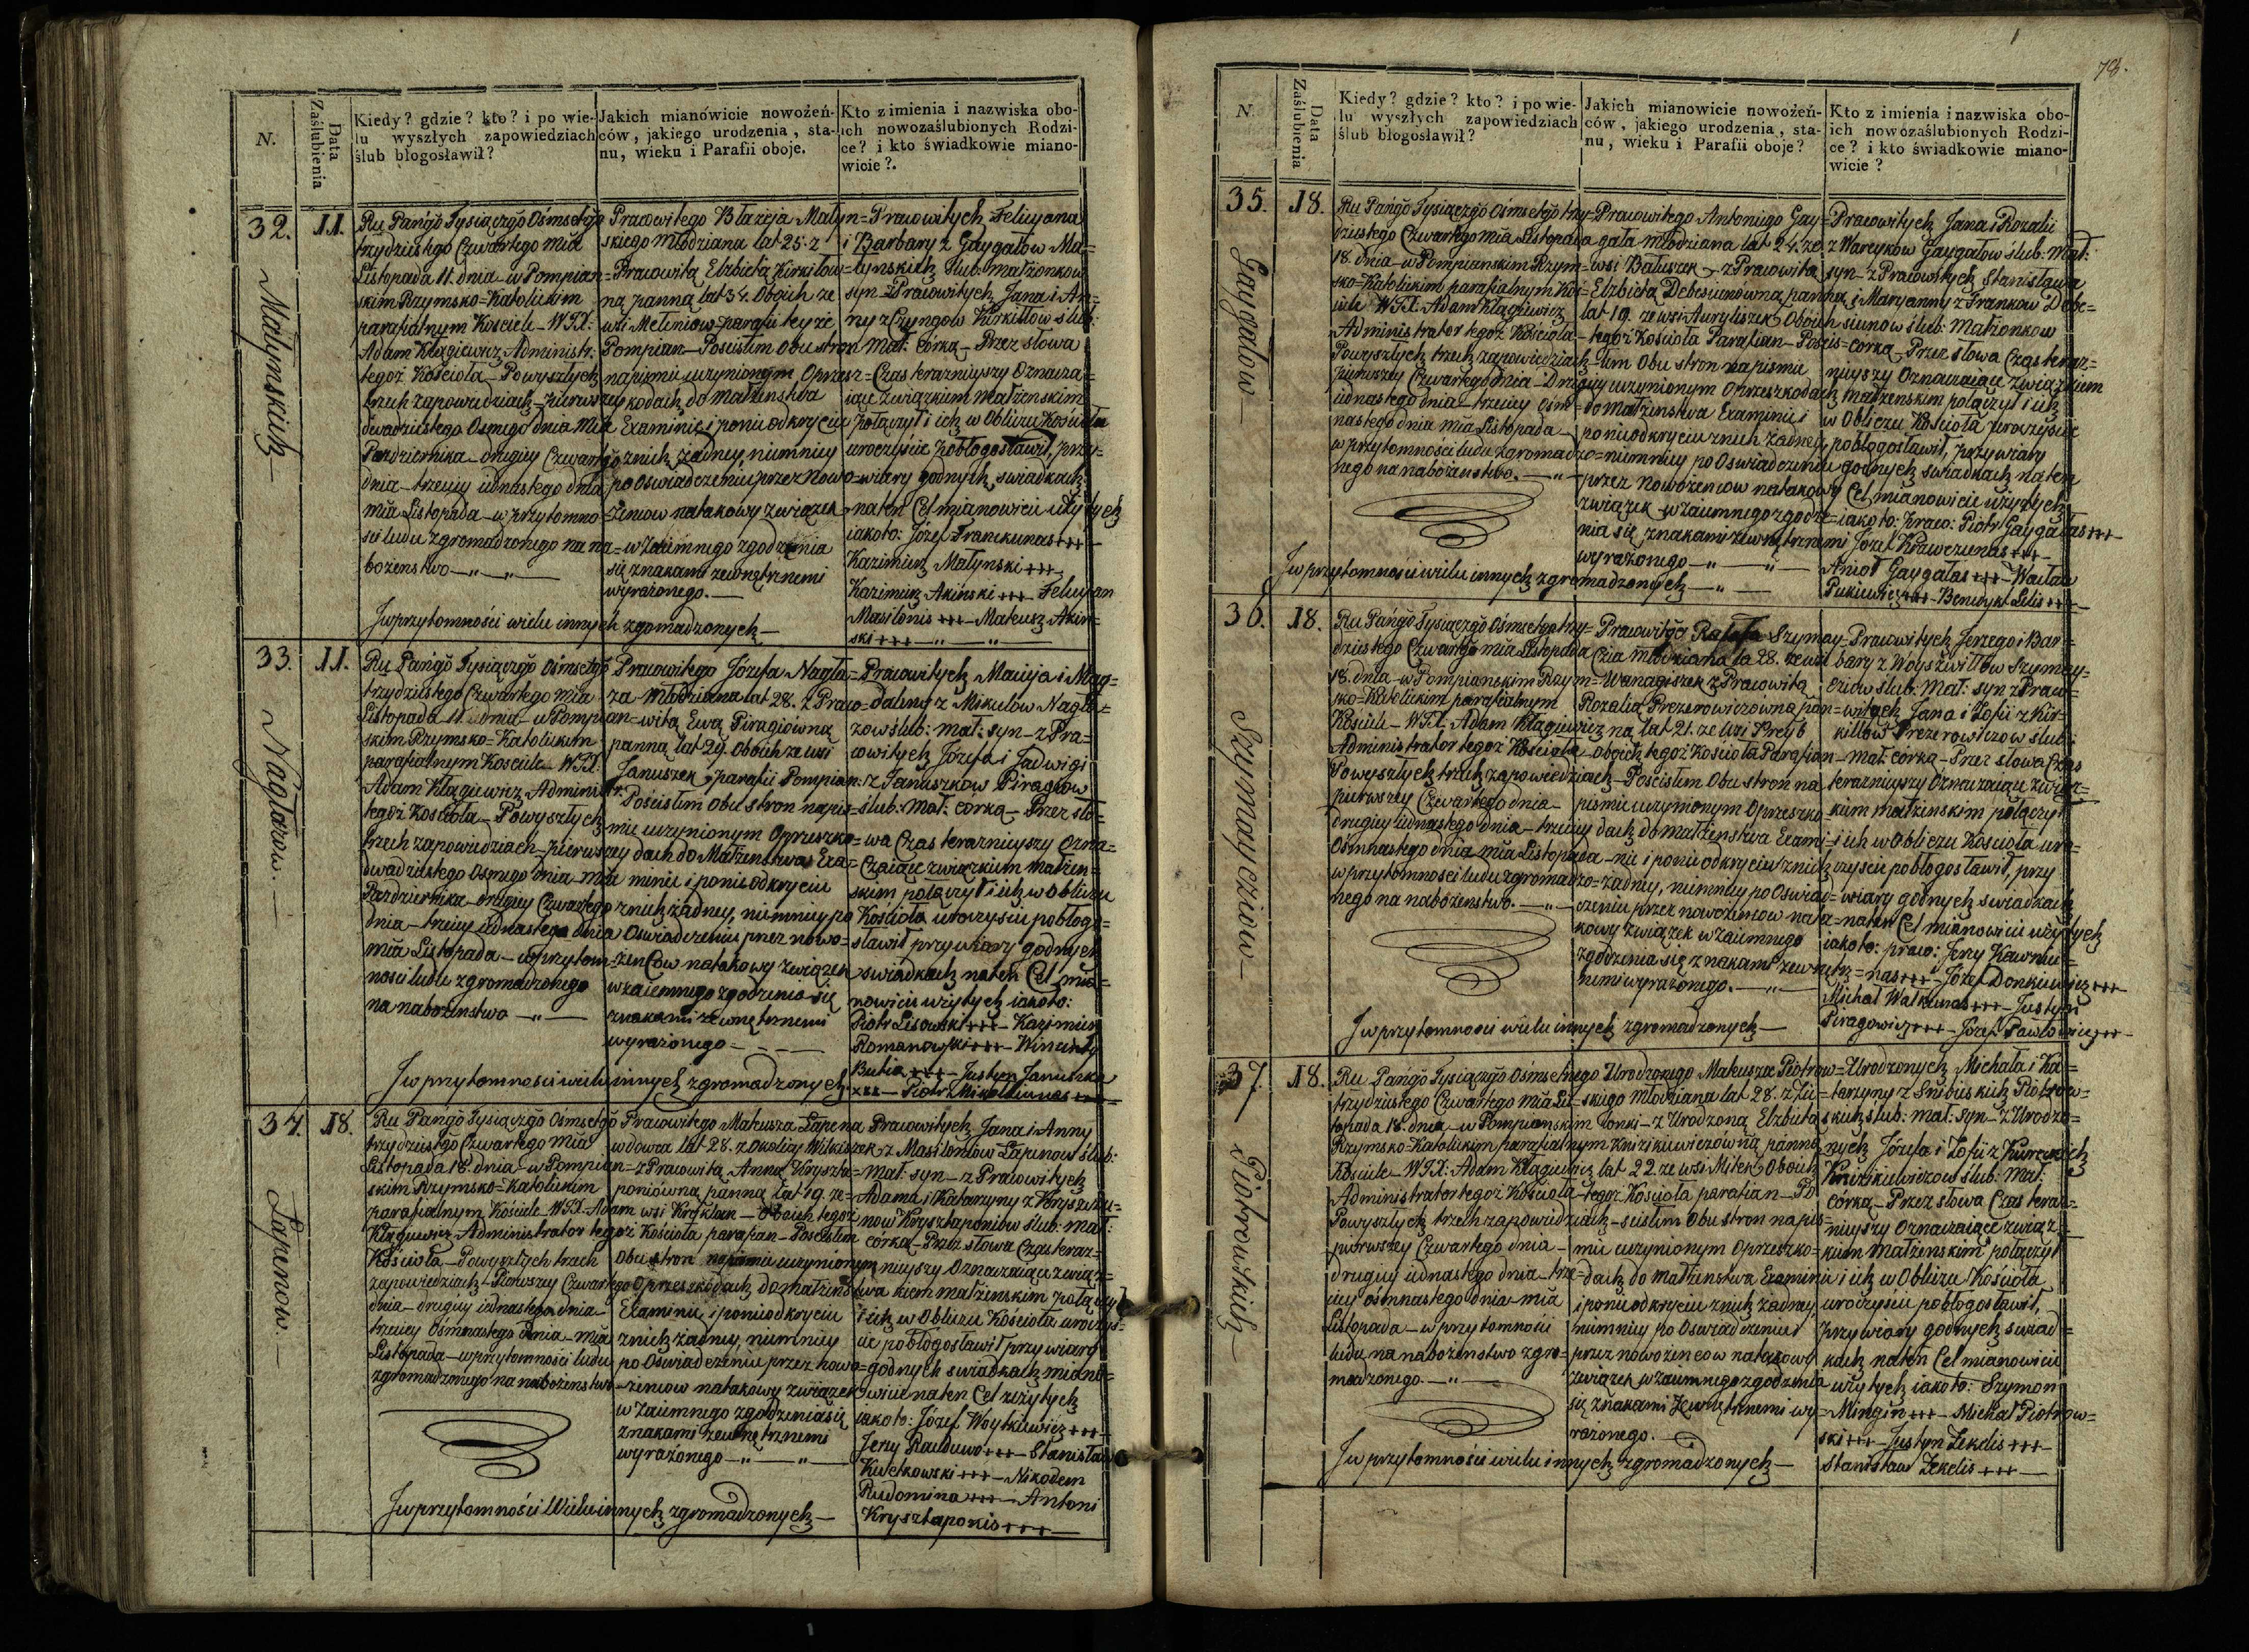 N.
Data Zaślubienia
Kiedy? gdzie? kto? i po wie-
lu wyszłych zapowiedziach
ślub błogosławił?
Jakich mianówicie nowożeń-
ców, jakiego urodzenia, sta-
nu, wieku i Parafii oboje.
Kto z imienia i nazwiska obo-
ich nowozaślubionych Rodzi-
ce? i kto świadkowie miano-
wicie?.
32.
11.
Małynskich
Ru Pańgo Tysiącżgo Ośmsetgo
trzydziestgo Czwartego mia
Listopada 11. dnia – w Pompian=
skim Rzymsko=Katolickim
parafialnym Kosciele – WJX:
Adam Kłągiewicz Administr:
tegoż Kościoła – Powyszłych
trzech zapowiedziach – pierwszey
dwadziestego Osmego dnia Mia
Pazdziernika – drugiey Czwartgo
dnia – trzeciey iednastego dnia
mia Listopada – w przytomno=
sci ludu zgromadzonego na na=
bożenstwo – „ – „ –
Pracowitego Błażeja Małyn=
skiego młodziana lat 25. z
Pracowitą Elzbietą Kirkiłow=
ną panną lat 34. Oboich ze
wsi Meleniow parafii teyże
Pompian – Poscisłem obu stron
napismie uczynionym Oprzesz=
kodach do Małżenstwa
Examinie i ponieodkryciu
znich żadney, niemniey
po Oswiadczeniu przez Nowo=
żencow natakowy związek
wzaiemnego zgodzenia
się znakami zewnętrznemi
wyrażonego. –
Pracowitych Felicyana
i Barbary z Gaygałow Ma=
łynskich slub: małżonkow
syn – z Pracowitych Jana i An=
ny z Czyngow Kirkiłłow ślub:
Mał: Córką – Przez słowa
Czas terazniejszy Oznacza=
iące związkiem Małżenskim
połączył i ich w Obliczu Kościoła
uroczyście pobłogosławił, przy
wiary godnych swiadkach
naten Cel mianowicie użytych
iakoto: Józef Franckunas +++
Kazimierz Małynski +++
Kazimierz Akiński +++ Felicyan
Masilonis +++ – Mateusz Akin=
ski +++ – „ – „ –
Jw przytomności wielu innych zgomadzonych –
33.
11.
Nagłazow. –
Ru Pańgo Tysiącżgo Ośmsetgo
trzydziestego Czwartego mia
Listopada 11. dnia – w Pompian=
skim Rzymsko=Katolickim
parafialnym Kosciele – WJX:
Adam Kłągiewicz Administr:
tegoż Kościoła – Powyszłych
trzech zapowiedziach – pierwszey
dwadziestego Osmego dnia – mia
Pazdziernika – drugiey Czwartego
dnia – trzeciey iednastego dnia
mia Listopada – w przytom=
nosci ludu zgromadzonego
na nabożenstwo – „ –
Pracowitego Józefa Nagła=
za Młodziana lat 28. z Praco=
witą Ewą Piragiówną
panną lat 29. Oboich ze wsi
Januszek, parafii Pompian:
Pościsłem Obu stron napis=
mie uczynionym Oprzeszko=
dach do Małżenstwas Exa=
minie i ponieodkryciu
znich żadney, niemniey po
Oświadczeniu przez nowo=
żencow natakowy związek
wzaiemnego zgodzenia się
znakami zewnętrznemi
wyrażonego – – –
Pracowitych Macieja i Mag=
daleny z Mikulow Nagła=
zow ślub: mał: syn – z Pra=
cowitych Józefa i Jadwigi
z Januszkow Piragiow
ślub: Mał: córką – Przez sło=
wa Czas terazniejszy Ozna=
czaiące związkiem małżen=
skim połączył i ich w Obliczu
Kościoła uroczyście pobłogo=
sławił przy wiary godnych
swiadkach naten Cel mia=
nowicie użytych iakoto:
Piotr Lisowski +++ – Kazimierz
Romanowski +++ – Wincenty
Butia +++ – Justyn Januszka
+++ – Piotr Mikołkunas +++
Jw przytomności wielu innych zgromadzonych
34.
18.
Łapenow. –
Ru Pańgo Tysiącżgo Ośmsetgo
trzydziestgo Czwartego mia
Listopada 18. dnia – w Pompian=
skim Rzymsko=Katolickim
parafialnym Kościele – WJX: Adam
Kłągiewicz Administrator tegoż
Kościoła – Powyszłych trzech
zapowiedziach – Pierwszey Czwartego
dnia – drugiey iednastego dnia –
trzeciey Ośmnastego dnia – mia
Listopada – w przytomności ludu
zgromadzonego na nabożenstwo
Pracowitego Mateusza Łapena
wdowca lat 28. z okolicy Wilkiszek,
z Pracowitą Anną Kryszta=
poniówną panną lat 19. ze
wsi Krofklan – oboich tegoż
Kościoła parafian – Poscisłem
Obu stron napismie uczynionym
Oprzeszkodach do małżenstwa
Examinie, i ponieodkryciu
znich żadney, niemniey
po Oświadczeniu przez nowo=
żencow natakowy związek
wzaiemnego zgodzenia się
znakami zewnętrznemi
wyrażonego – „ – „ –
Pracowitych Jana i Anny
z Masilontow Łapenow ślub:
mał: syn – z Pracowitych
Adama i Katarzyny z
now Krysztaponiow ślub: mał:
córką – Przez słowa Czas teraz=
nieyszy Oznaczaiące związ=
kiem małżenskim połączył
i ich w Obliczu Kościoła uroczys=
cie pobłogosławił przy wiary
godnych swiadkach miano=
wicie naten Cel użytych
iakoto: Józef Woytkiewicz +++
Jerzy Rauduwo +++ – Stanisław
Kwetkowski +++ – Nikodem
Rudomina +++ – Antoni
Krysztaponis +++
Jw przytomności Wielu innych zgromadzonych –
78.
N.
Data Zaślubienia
Kiedy? gdzie? kto? i po wie-
lu wyszłych zapowiedziach
ślub błogosławił?
Jakich mianowicie nowożeń-
ców, jakiego urodzenia, sta-
nu, wieku i Parafii oboje?
Kto z imienia i nazwiska obo-
ich nowozaślubionych Rodzi-
ce? i kto świadkowie miano-
wicie?
35.
18.
Gaygałow –
Ru Pańgo Tysiącżgo Ośmsetgo trzy=
dziestego Czwartego mia Listopada
18. dnia – w Pompianskim Rzym=
sko=Katolickim parafialnym Koś=
ciele WJX: Adam Kłągiewicz
Administrator tegoż Kościoła –
Powyszłych trzech zapowiedziach
pierwszey Czwartego dnia – Drugiey
iednastego dnia – trzeciey Osm=
nastego dnia mia Listopada –
w przytomności ludu zgromadzo=
nego na nabożenstwo. – „ –
Pracowitego Antoniego Gay=
gała młodziana lat 24. ze
wsi Batuszek – z Pracowitą
Elżbietą Debesiunówną panną
lat 19. ze wsi Auryliszek Oboich
tegoż Kościoła Parafian – Pościs=
łem Obu stron na pismie
uczynionym Oprzeszkodach
do Małżenstwa Examinie i
ponieodkryciu znich żadney
niemniey po Oswiadczeniu
przez Nowożencow natakowy
związek wzaiemnego zgodze=
nia się znakami zewnętrznemi
wyrażonego – „ – „ –
Pracowitych Jana i Rozalii
z Warcykow Gaygałow ślub: Mał:
syn – z Pracowitych Stanisława
i Maryanny z Frankow Debe=
siunow ślub: Małżonkow
córką – Przez słowa Czas teraz=
nieyszy Oznaczaiące Związkiem
małżenskim połączył i ich
w Obliczu Kościoła uroczyście
pobłogosławił, przy wiary
godnych swiadkach naten
Cel mianowicie użytych
iakoto: praco: Piotr Gaygałas +++
Józef Krawczunas +++
Anioł Gaygałas +++ – Wacław
Pukiewicz +++ – Benedykt Lelis +++
Jw przytomności wielu innych zgromadzonych – „ –
36.
18.
Szymayciow –
Ru Pańgo Tysiącżgo Ośmsetgo trzy=
dziestego Czwartgo mia Listopada
18. dnia – w Pompianskim Rzym=
sko=Katolickim parafialnym
Kościele – WJX: Adam Kłągiewicz
Administrator tegoż Kościoła –
Powyszłych trzech zapowiedziach –
pierwszey Czwartego dnia –
drugiey iednastego dnia – trzeciey
Osmnastego dnia mia Listopada –
w przytomności ludu zgromadzo=
nego na nabożenstwo. – „ –
Pracowitgo Rafała Szymay=
cia młodziana la 28. ze wsi
Wanagiszek z Pracowitą
Rozalią Prezerowiczówną pan=
ną lat 21. ze wsi Preyb
oboich tegoż Kościoła Parafian –
Pościsłem Obu stron na
pismie uczynionym Oprzeszko=
dach do Małżenstwa Exami=
nie i ponieodkryciu znich
żadney, niemniey po Oswiad=
czeniu przez nowożencow nata=
kowy związek wzaiemnego
zgodzenia się znakami zewnętrz=
nemi wyrażonego. – „ –
Pracowitych Jerzego i Bar=
bary z Woyszwiłłow Szymay=
ciow ślub: Mał: syn z Praco=
witych Jana i Zofii z Kir=
kiłłow Prezerowiczow ślub:
Mał: córką – Przez słowa Czas
terazniejszy Oznaczaiące związ=
kiem małżenskim połączył
i ich w Obliczu Kościoła uro=
czyście pobłogosławił, przy
wiary godnych swiadkach
naten Cel mianowicie użytych
iakoto: praco: Jerzy Kawniu=
nas +++ – Józef Donkiewicz +++
Michał Wałkunas +++ – Justyn
Piragowicz +++ – Józef Pawłowicz +++
Jw przytomności wielu innych zgromadzonych –
37.
18.
Piotrowskich –
Ru Pańgo Tysiącżgo Ośmsetnego
trzydziestego Czwartego mia Lis=
topada 18. dnia – w Pompianskim
Rzymsko=Katolickim parafialnym
Kościele – WJX: Adam Kłągiewicz
Administrator tegoż Kościoła –
Powyszłych trzech zapowiedziach –
pierwszey Czwartego dnia –
drugiey iednastego dnia – trze=
ciey ośmnastego dnia – mia
Listopada – w przytomności
ludu na nabożenstwo zgro=
madzonego. – „ –
Urodzonego Mateusza Piotrow=
skiego Młodziana lat 28. z Lu=
tonki – z Urodzoną Elzbietą
Knizikiewiczówną panną
lat 22 ze wsi Mitek, Oboich
tegoż Kościoła parafian – Po
scisłem Obu stron na pis=
mie uczynionym Oprzeszko=
dach do małżenstwa Examinie
i ponieodkryciu znich żadney
niemniey po Oswiadczeniu
przez nowożencow natakowy
związek wzaiemnego zgodzenia
się znakami Zewnętrznemi wy=
rażonego. –
Urodzonych Michała i Ka=
tarzyny z Snibuskich Piotrow=
skich slub: mał: syn – z Urodzo=
nych Józefa i Zofii z
Knizikiewiczow ślub: Mał:
córką – Przez słowa Czas teraz=
nieyszy Oznaczaiące związ=
kiem Małżenskim połączył
i ich w Obliczu Kościoła
uroczyście pobłogosławił,
przy wiary godnych swiad=
kach naten Cel mianowicie
użytych iakoto: Szymon
Mingin +++ – Michał Piotrow=
ski +++ – Justyn Zekelis +++
Stanisław Zekelis +++ –
Jw przytomności wielu innych zgromadzonych –